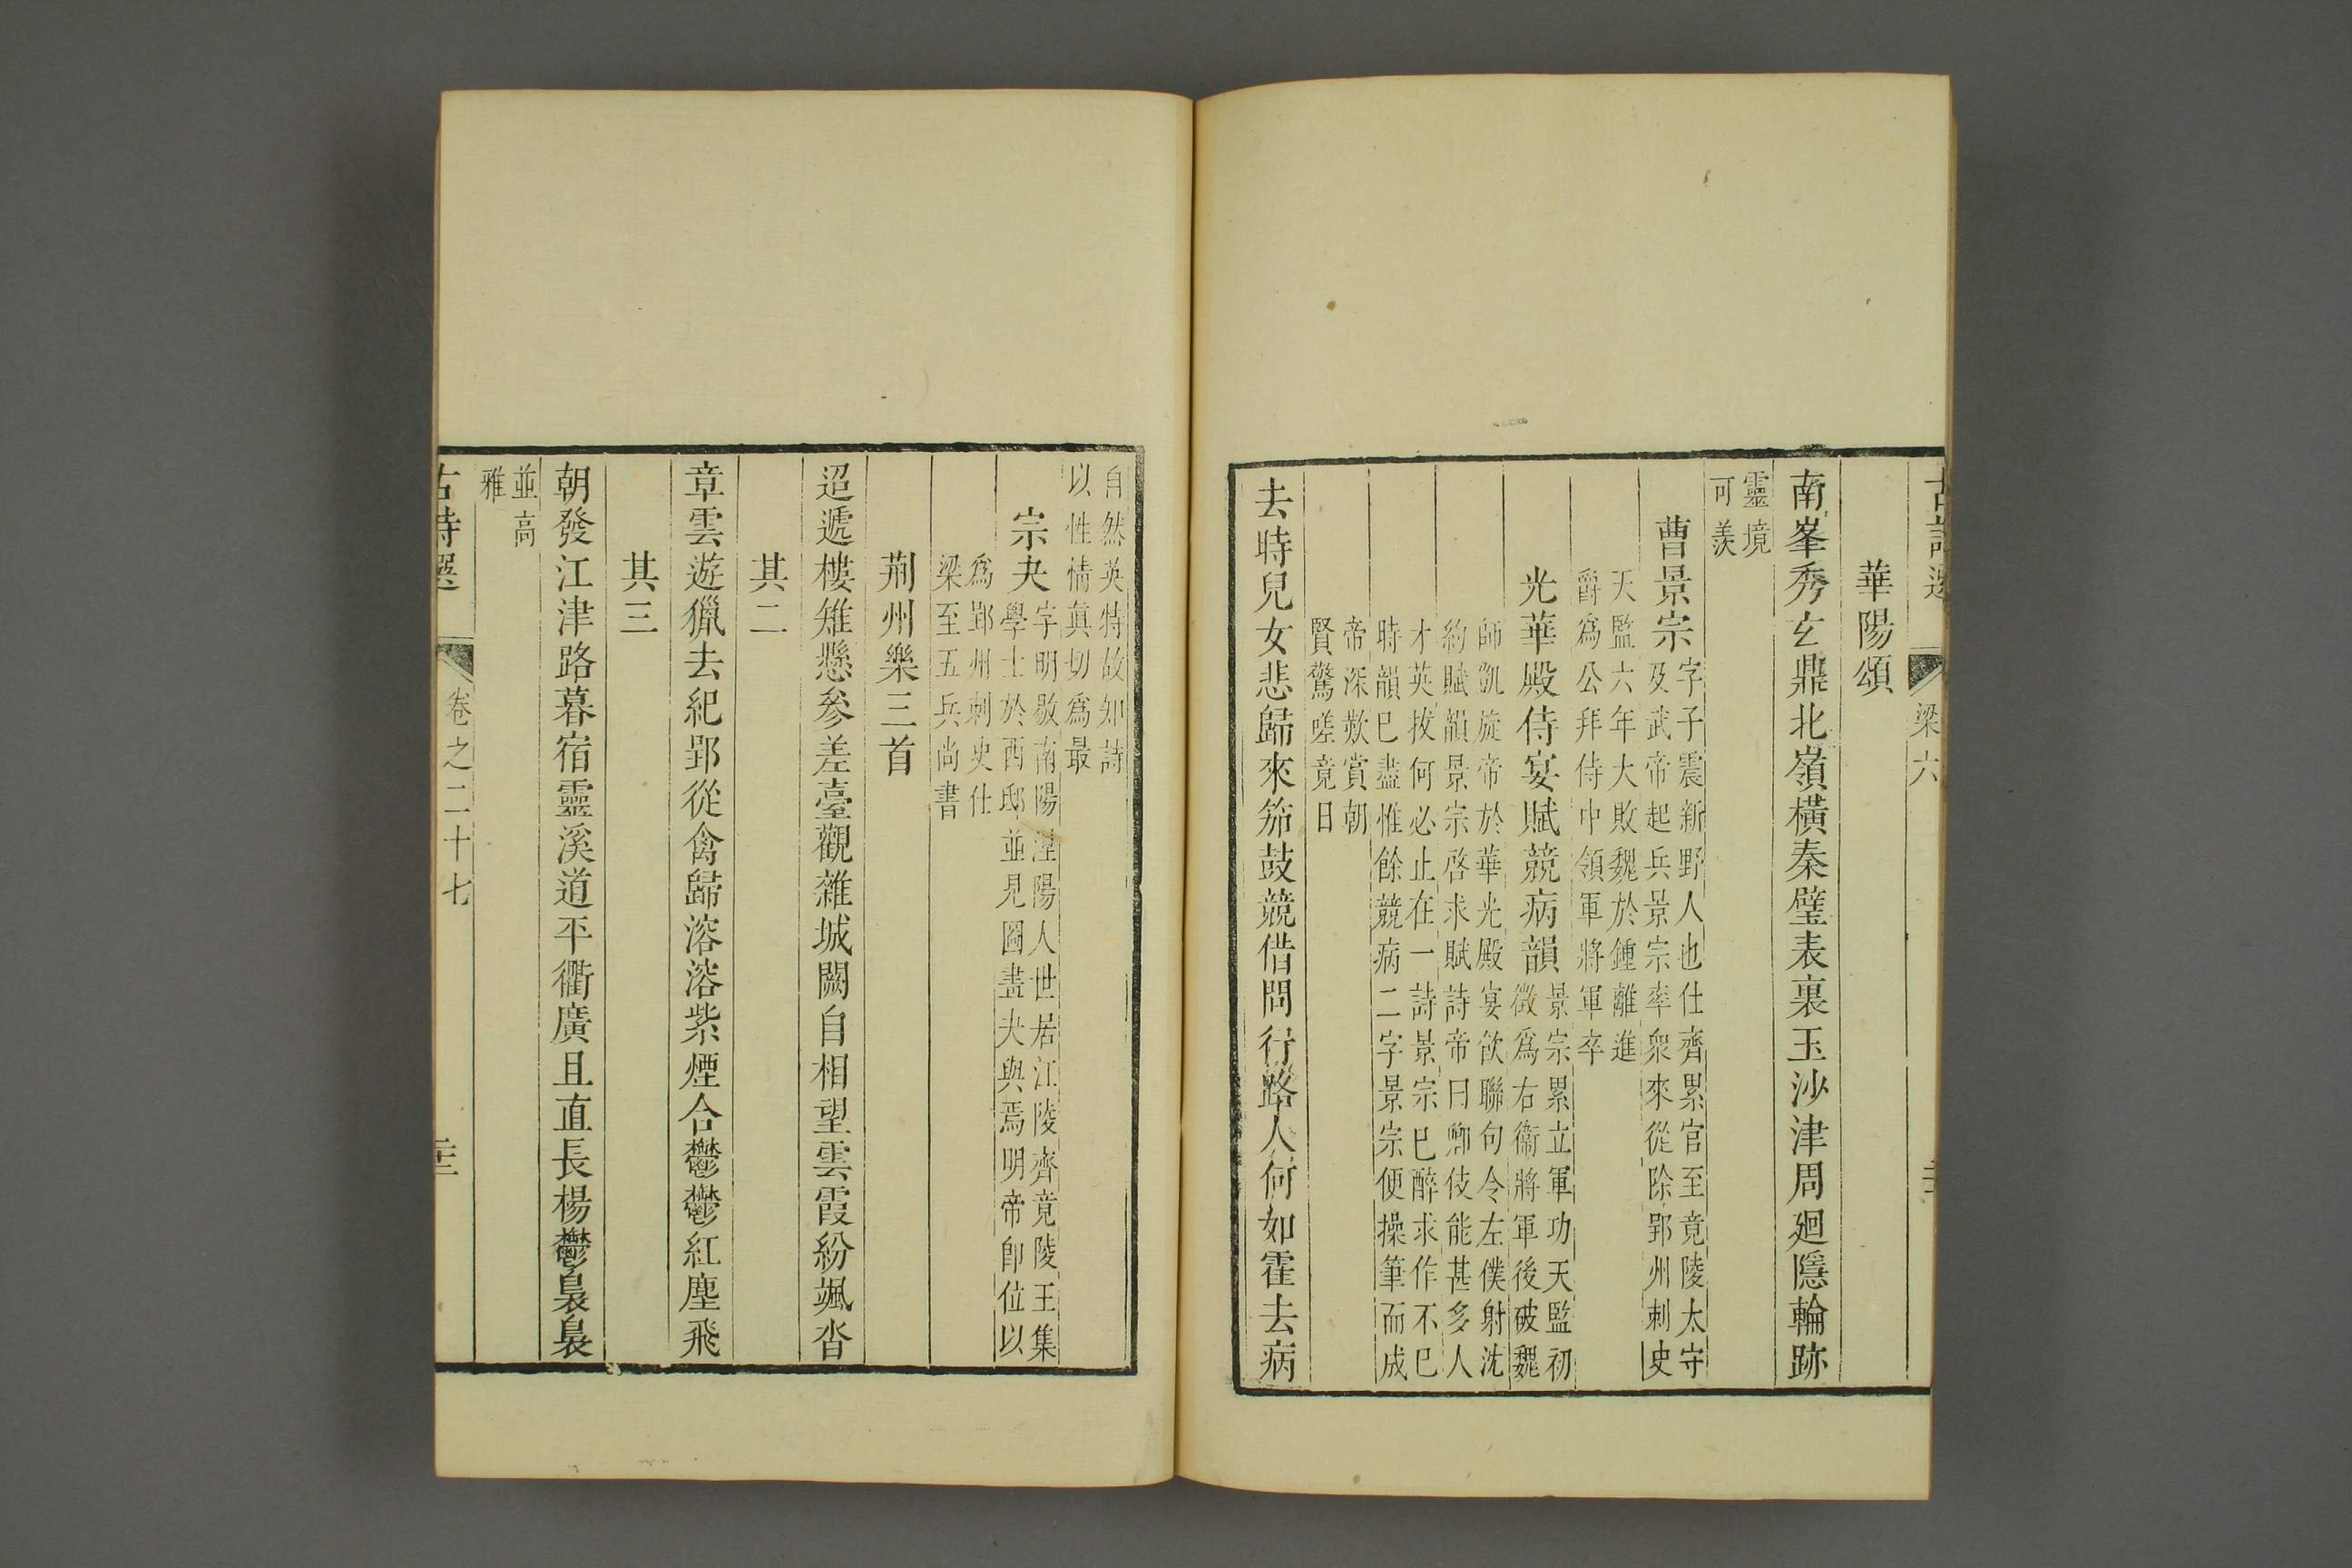 古詩選 梁六
華陽頌
南峯秀玄鼎北嶺橫秦璧表裏玉沙津周廻隱輪跡
靈境
可羨
曹景宗
字子震新野人也仕齊累官至竟陵太守
及武帝起兵景宗率衆來從除郢州刺史
天監六年大敗魏於鍾離進
爵爲公拜侍中領軍將軍卒
光華殿侍宴賦競病韻
景宗累立軍功天監初
徵爲右衞將軍後破魏
師凱旋帝於華光殿宴飮聯句令左僕射沈
約賦韻景宗啓求賦詩帝曰卿伎能甚多人
才英拔何必止在一詩景宗已醉求作不已
時韻已盡惟餘競病二字景宗便操筆而成
帝深歎賞朝
賢驚嗟竟日
去時兒女悲歸來笳鼓競借問行路人何如霍去病
自然英特故如詩
以性情眞切爲最
宗夬
字明敭南陽涅陽人世居江陵齊竟陵王集
學士於西邸並見圖畫夬與焉明帝卽位以
爲郢州刺史仕
梁至五兵尚書
荆州樂三首
迢遞樓雉懸參差臺觀雜城闕自相望雲霞紛颯沓
其二
章雲遊獵去紀郢從禽歸溶溶紫煙合鬱鬱紅塵飛
其三
朝發江津路暮宿靈溪道平衢廣且直長楊鬱裊裊
並高
雅
古詩選 卷之二十七